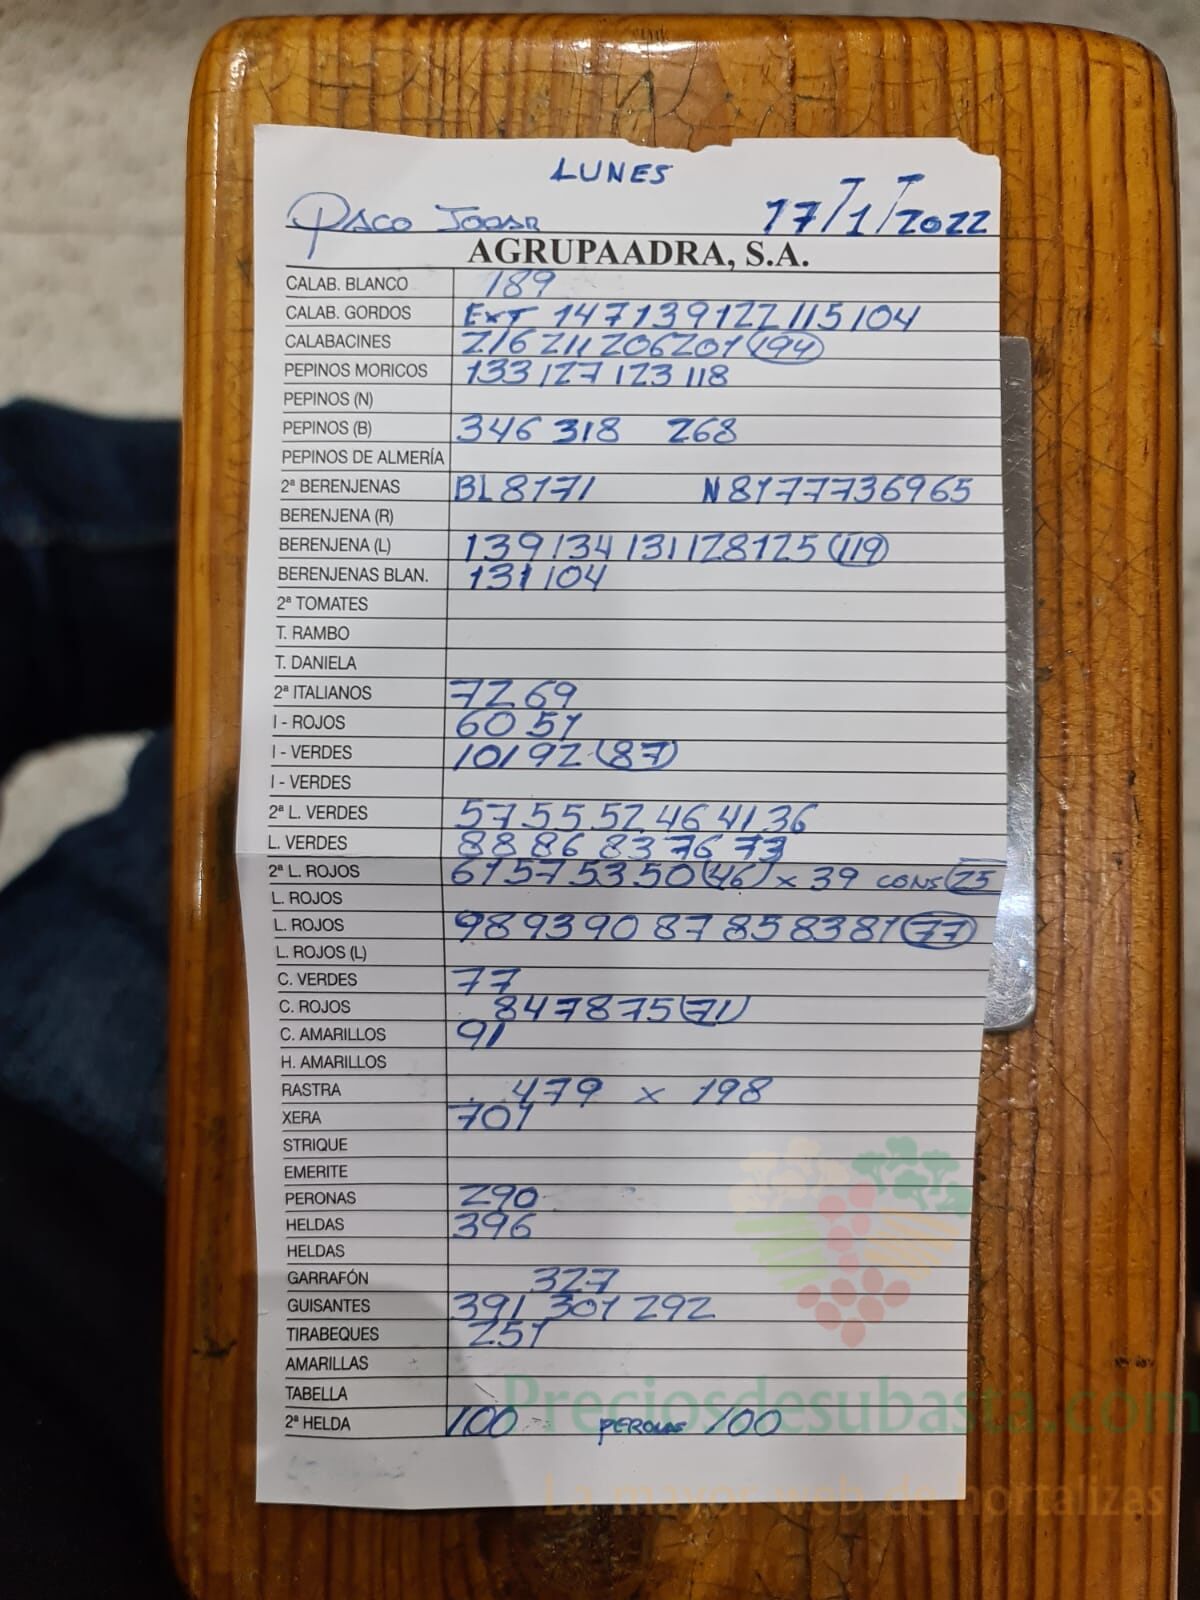 LUNES
PACO JODAR 17/1/2022
AGRUPAADRA, S.A.
CALAB. BLANCO 189
CALAB. GORDOS EXT 147 139 122 115 104
CALABACINES 216 211 206 201 194
PEPINOS MORICOS 133 127 123 118
PEPINOS (N)
PEPINOS (B) 346 318 268
PEPINOS DE ALMERÍA
2ª BERENJENAS BL 81 71 N 81 77 73 69 65
BERENJENA (R)
BERENJENA (L) 139 134 131 128 125 119
BERENJENAS BLAN. 131 104
2ª TOMATES
T. RAMBO
T. DANIELA
2ª ITALIANOS 72 69
I - ROJOS 60 51
I - VERDES 101 92 (87)
I - VERDES
2ª L. VERDES 57 55 52 46 41 36
L. VERDES 88 86 83 76 73
2ª L. ROJOS 61 57 53 50 (46) x 39 CONS 25
L. ROJOS
L. ROJOS 98 93 90 87 85 83 81 77
L. ROJOS (L)
C. VERDES 77
C. ROJOS 84 78 75 (71)
C. AMARILLOS 91
H. AMARILLOS
RASTRA 479 x 198
XERA 701
STRIQUE
EMERITE
PERONAS 290
HELDAS 396
HELDAS
GARRAFÓN 327
GUISANTES 391 301 292
TIRABEQUES 251
AMARILLAS
TABELLA
2ª HELDA 100 PERONAS 100
Preciosdesubasta.com
La mayor web de hortalizas